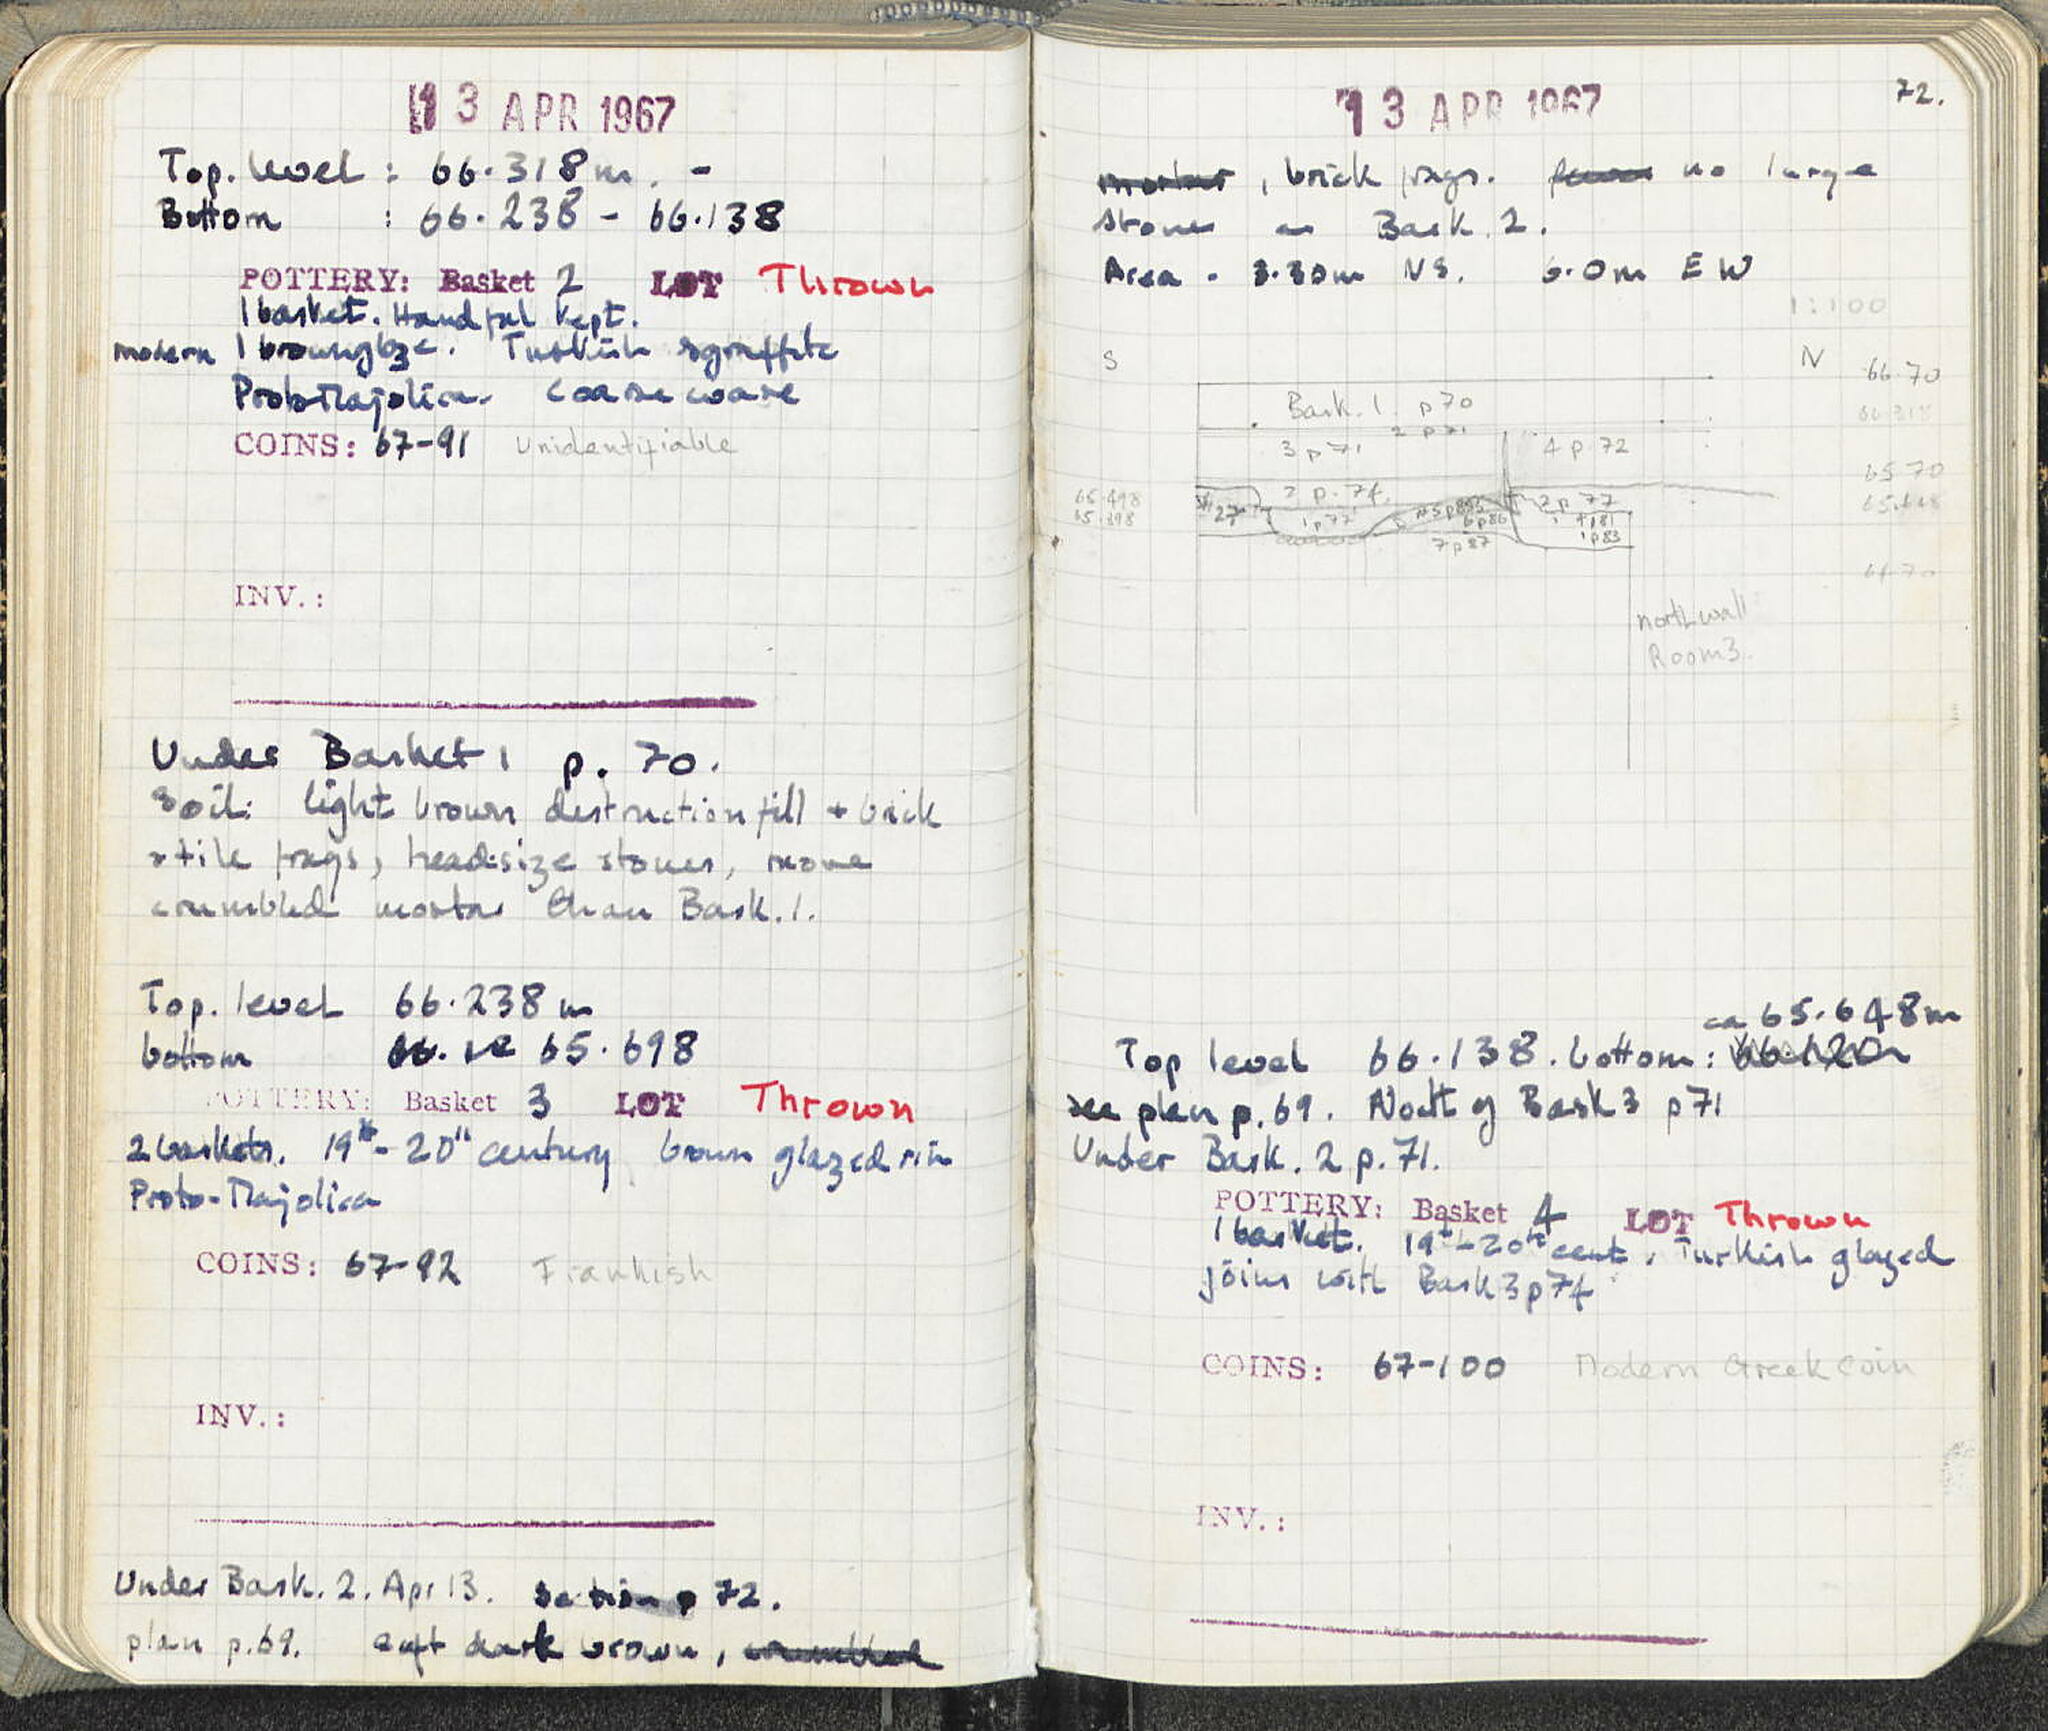 13 APR 1967
Top. level : 66.318 m. -
Bottom : 66.238 - 66.138
POTTERY: Basket 2 LOT Thrown
1 basket. Handful kept.
modern 1 brown glaze. Turkish sgraffito
Proto-Majolica. Coarse ware
COINS: 67-91 Unidentifiable
INV.:
Under Basket 1 p. 70.
Soil: light brown destruction fill + brick
+ tile frags, head-size stones, more
crumbled mortar than Bask. 1.
Top. level 66.238 m
bottom 65.698
POTTERY: Basket 3 LOT Thrown
2 baskets. 19th - 20th century brown glazed rim
Proto-Majolica
COINS: 67-92 Frankish
INV.:
Under Bask. 2. Apr 13. Section p 72.
plan p.69. soft dark brown, crumbled
13 APR 1967
72.
mortar, brick frags. no large
stones as Bask. 2.
Area. 3.30m NS. 6.0m EW
1:100
S N 66.70
Bask. 1. p 70 66.318
2 p 71
3 p 71 4 p. 72
65.70
65.498 3 p. 74. 2 p 77 65.648
65.398 1 p 77 5 p 85 4 p 81
6 p 86 1 p 83
7 p 87
64.70
north wall
Room 3.
ca 65.648m
Top level 66.138. bottom: 66.120m
see plan p. 69. North of Bask 3 p 71
Under Bask. 2 p. 71.
POTTERY: Basket 4 LOT Thrown
1 basket. 19th-20th cent. Turkish glazed
joins with Bask 3 p 74
COINS: 67-100 Modern Greek coin
INV.: